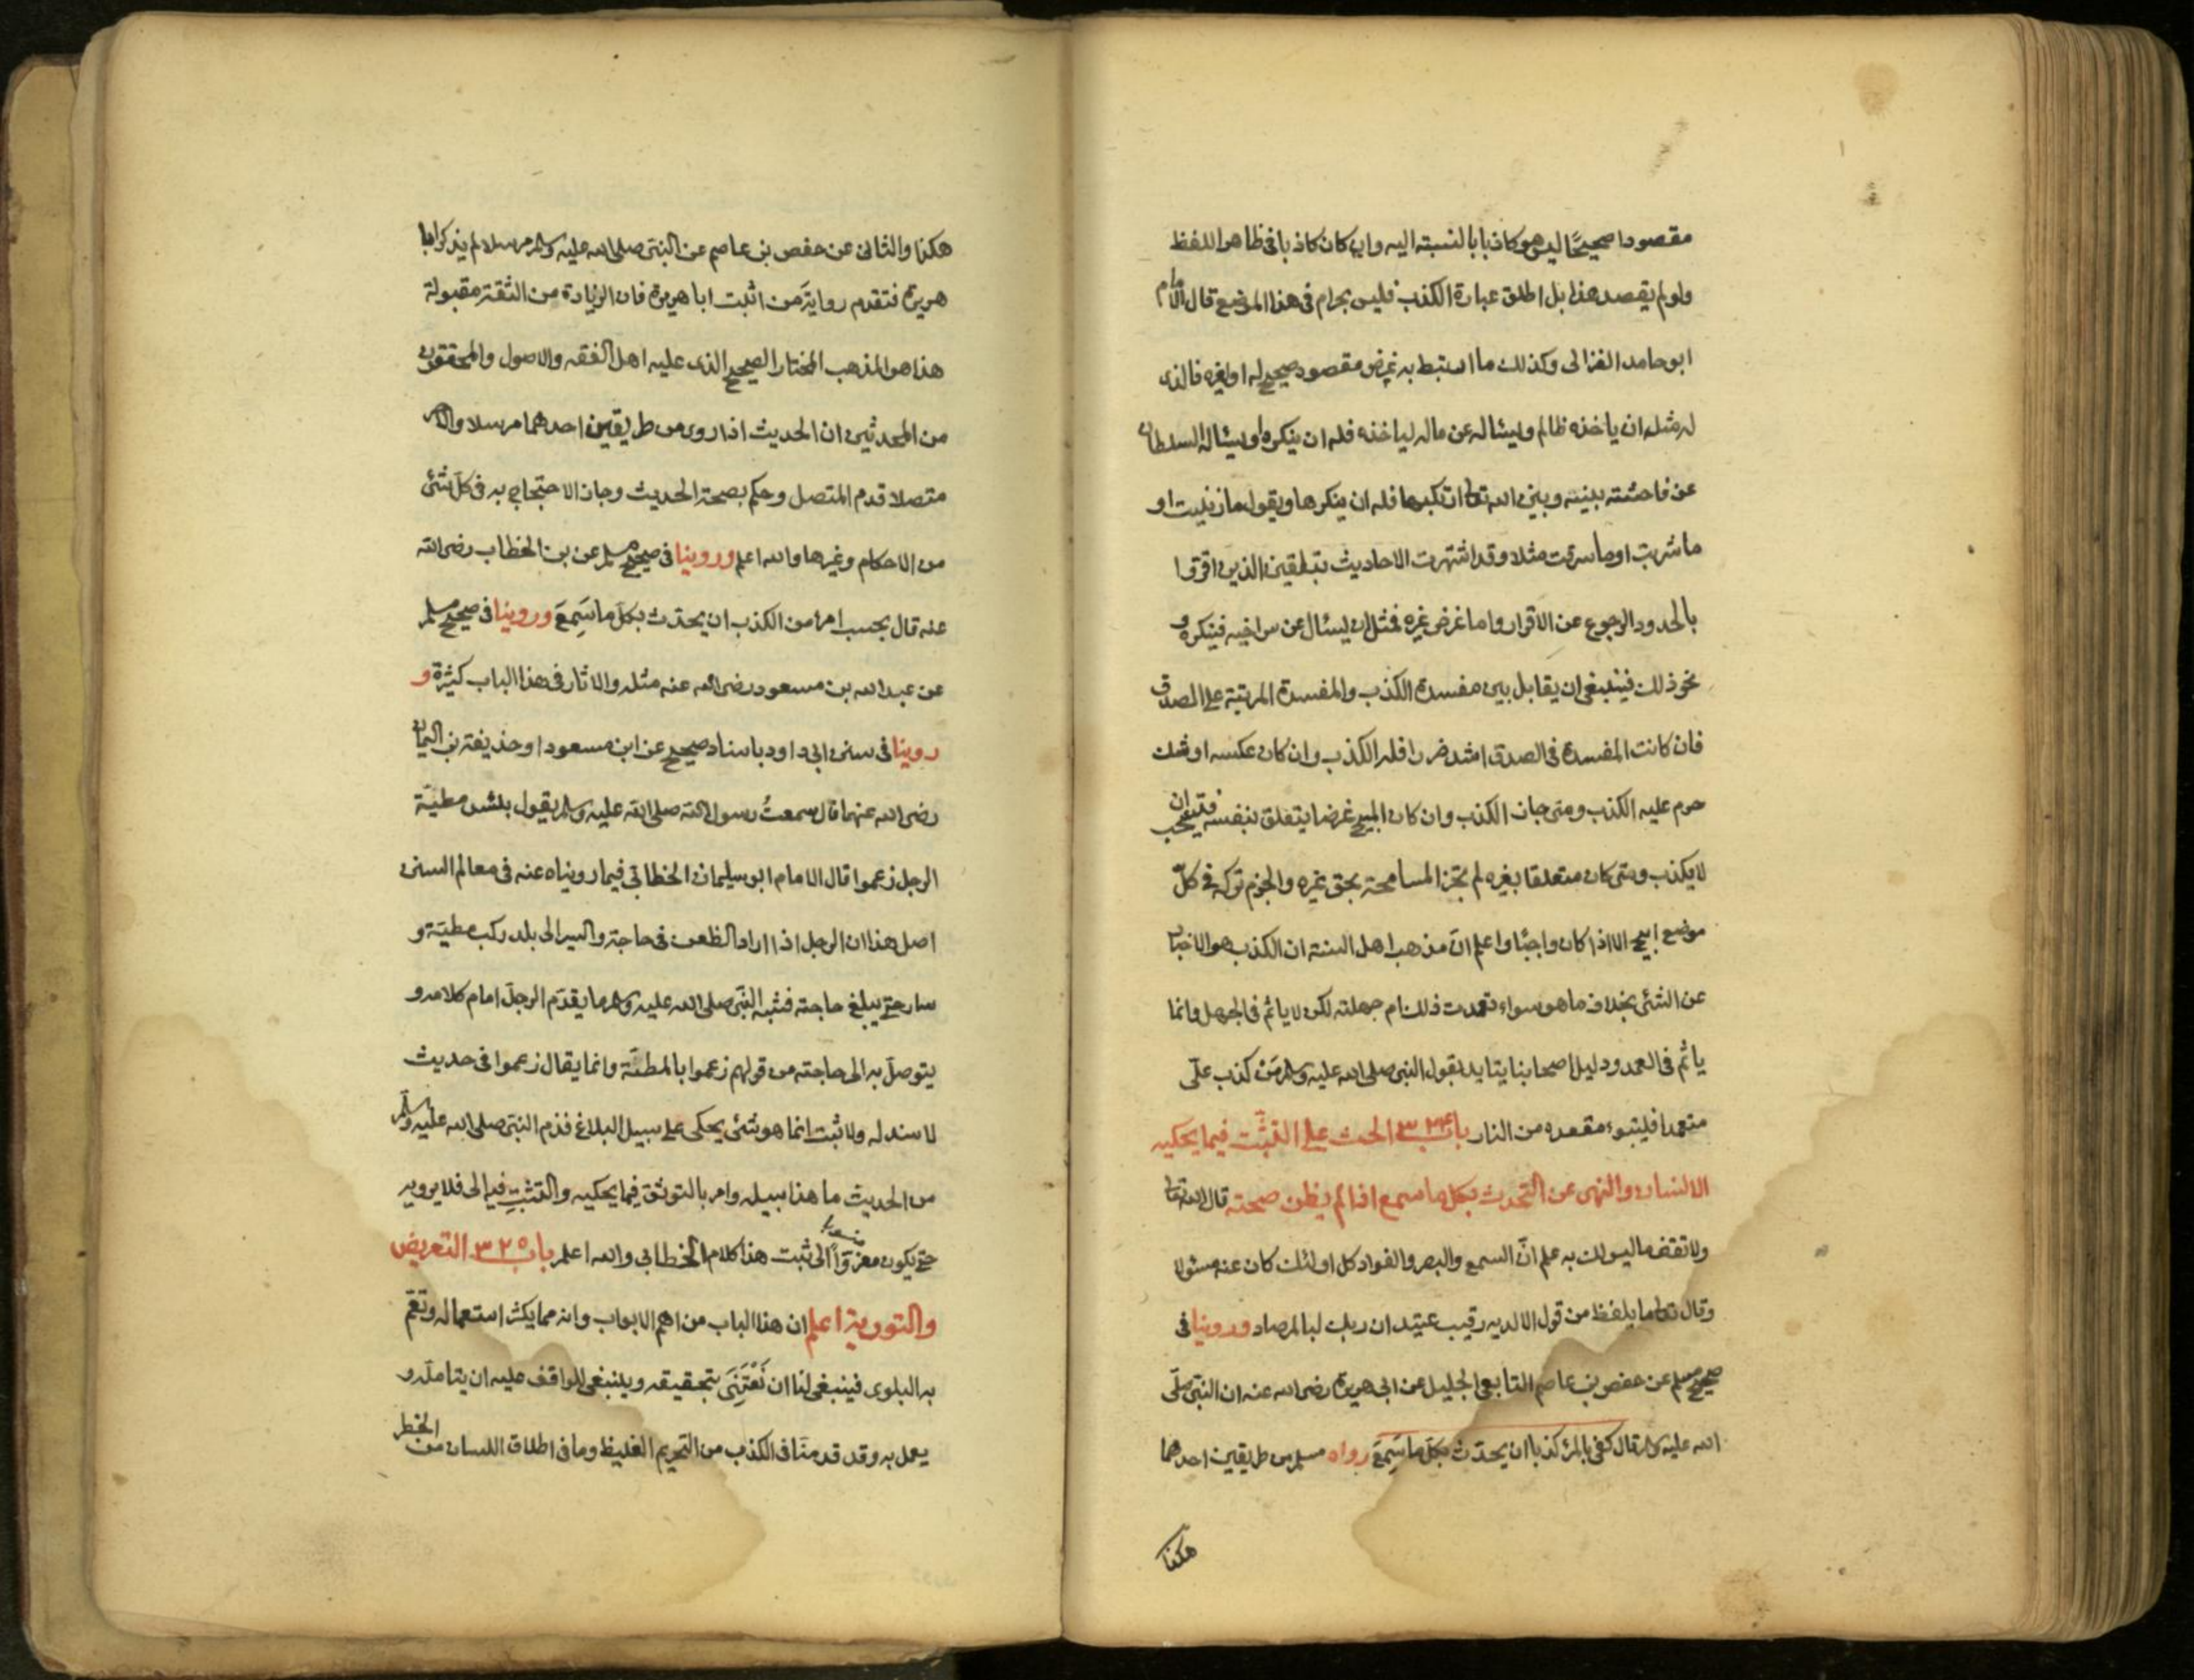 مقصودا صحيحًا ليس هو كاذبا بالنسبته اليه وان كان كاذبا فى ظاهر اللفظ
ولو لم يقصد هذا بل اطلق عبارة الكذب فليس بحرام فى هذا الموضع قال الامام
ابو حامد الغزالى وكذلك ما ارتبط به غرض مقصود صحيح له او لغيره فالذى
له مثله ان ياخذه ظالم ويسئاله عن ماله لياخذه فله ان ينكره او يسئاله السلطان
عن فاحشته بينه وبين الله تعالى ارتكبها فله ان ينكرها ويقول ما زنيت او
ما شربت او ما سرقت مثلا وقد اشتهرت الاحاديث بتلقين الذين اقروا
بالحدود الرجوع عن الاقرار واما غرض غيره فمثل ان يسئال عن سر اخيه فينكره و
نحو ذلك فينبغى ان يقابل بين مفسدة الكذب والمفسدة المرتبة على الصدق
فان كانت المفسدة فى الصدق اشد ضررا فله الكذب وان كان عكسه او شك
حرم عليه الكذب ومتى جاز الكذب وان كان المبيح غرضا يتعلق بنفسه فيستحب ان
لا يكذب ومتى كان متعلقا بغيره لم تجز المسامحة بحق غيره والحزم تركه فى كلّ
موضع ابيح الا اذا كان واجبًا واعلم انّ مذهب اهل السنته ان الكذب هو الاخبار
عن الشئى بخلاف ما هو سواء تعمدت ذلك ام جهلته لكن لا ياثم فى الجهل وانما
ياثم فى العمد ودليل اصحابنا يتايد بقول النبى صلى الله عليه وسلم مَن كذب علىّ
متعمدا فليتبوء مقعده من النار باب ٣٢٤ الحث على التثبّت فيما يحكيه
الانسان والنهى عن التحدث بكل ما سمع اذا لم يظن صحته قال الله تعالى
ولا تقف ما ليس لك به علم انّ السمع والبصر والفواد كل اولئك كان عنه مسئولا
وقال تعالى ما يلفظ من قول الا لديه رقيب عتيد ان ربك لبالمرصاد وروينا فى
صحيح مسلم عن حفص بن عاصم التابعى الجليل عن ابى هريرة رضى الله عنه ان النبىّ صلّى
الله عليه وسلم قال كفى بالمرء كذبا ان يحدّث بكلّ ما سَمِعَ رواه مسلم من طريقين احدهما
هكذا
هكذا والثانى عن حفص بن عاصم عن النبىّ صلى الله عليه وسلم مرسلا لم يذكر ابا
هريرة فتقدم رواية مَن اثبت ابا هريرة فان الزيادة من الثقته مقبولة
هذا هو المذهب المختار الصحيح الذى عليه اهل الفقه والاصول والمحققون
من المحدثين ان الحديث اذا روى من طريقين احدهما مرسلا والاخر
متصلا قدم المتصل وحكم بصحة الحديث وجاز الاحتجاج به فى كلّ شئى
من الاحكام وغيرها والله اعلم وروينا فى صحيح مسلم عن بن الخطاب رضى الله
عنه قال بحسب امرأ من الكذب ان يحدّث بكلّ ما سَمِعَ وروينا فى صحيح مسلم
عن عبد الله بن مسعود رضى الله عنه مثله والاثار فى هذا الباب كثيرة و
روينا فى سنن ابى داود باسناد صحيح عن ابن مسعود او حذيفته بن اليمان
رضى الله عنهما قال سمعتُ رسول الله صلى الله عليه وسلم يقول بئس مطيّة
الرجل زعموا قال الامام ابو سليمان الخطابى فيما رويناه عنه فى معالم السنن
اصل هذا ان الرجل اذا اراد الظعن فى حاجته والسير الى بلد ركب مطيّة و
سار حتى يبلغ حاجته فشبه النبّى صلى الله عليه وسلم ما يقدّم الرجل امام كلامه و
يتوصلّ به الى حاجته من قولهم زعموا بالمطيّة وانما يقال زعموا فى حديث
لا سند له ولا ثبت انما هو شئى يحكى على سبيل البلاغ فذم النبىّ صلى الله عليه وسلم
من الحديث ما هذا سبيله وامر بالتوثق فيما يحكيه والتثبتِ فيه الى فلا يرويه
حتى يكون معزوّاً الى ثبت هذا كلام الخطابى والله اعلم باب ٣٢٥ التعريض
والتورية اعلم ان هذا الباب من اهم الابواب وانه مما يكثر استعماله وتعمّ
به البلوى فينبغى لنا ان نَعْتَنِىَ بتحقيقه وينبغى للواقف عليه ان يتاملّه و
يعمل به وقد قدمنا فى الكذب من التحريم الغليظ وما فى اطلاق اللسان من الخطر